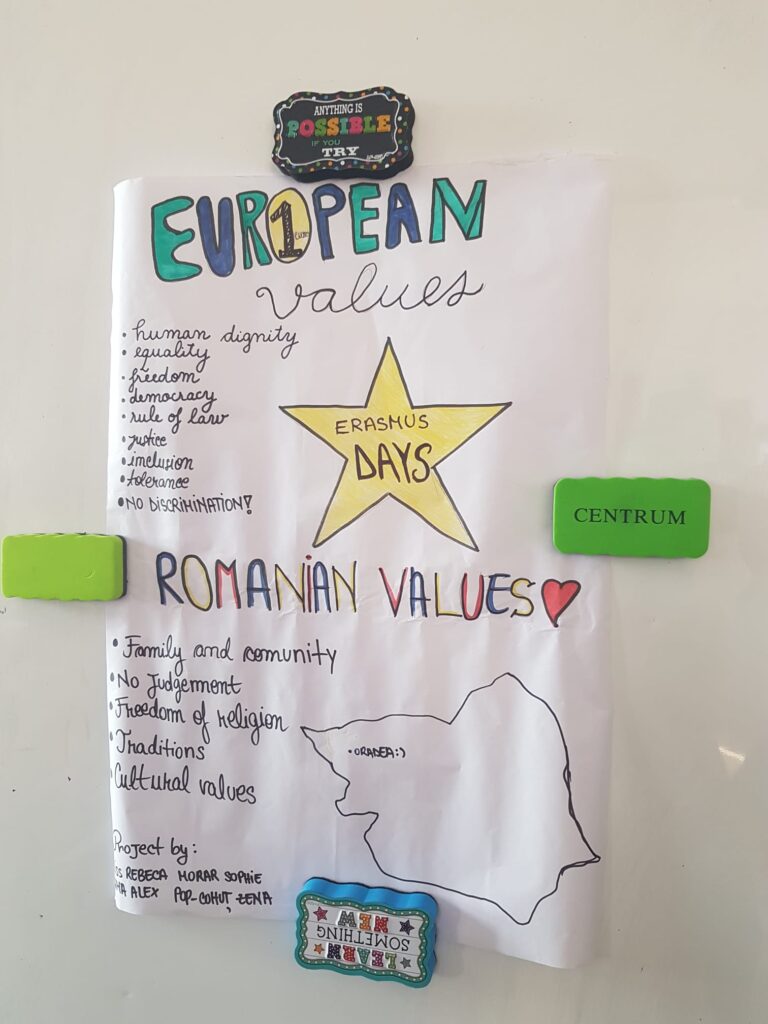 ANYTHING IS
POSSIBLE
IF YOU
TRY
EUROPEAN
1
values
• human dignity
• equality
• freedom
• democracy
• rule of law
• justice
• inclusion
• tolerance
• NO DISCRIMINATION!
ERASMUS
DAYS
CENTRUM
ROMANIAN VALUES
• Family and comunity
• No Judgement
• Freedom of religion
• Traditions
• Cultural values
• ORADEA:)
Project by:
REBECA MORAR SOPHIE
ALEX POP-COHUȚ ZENA
LEARN
SOMETHING
NEW